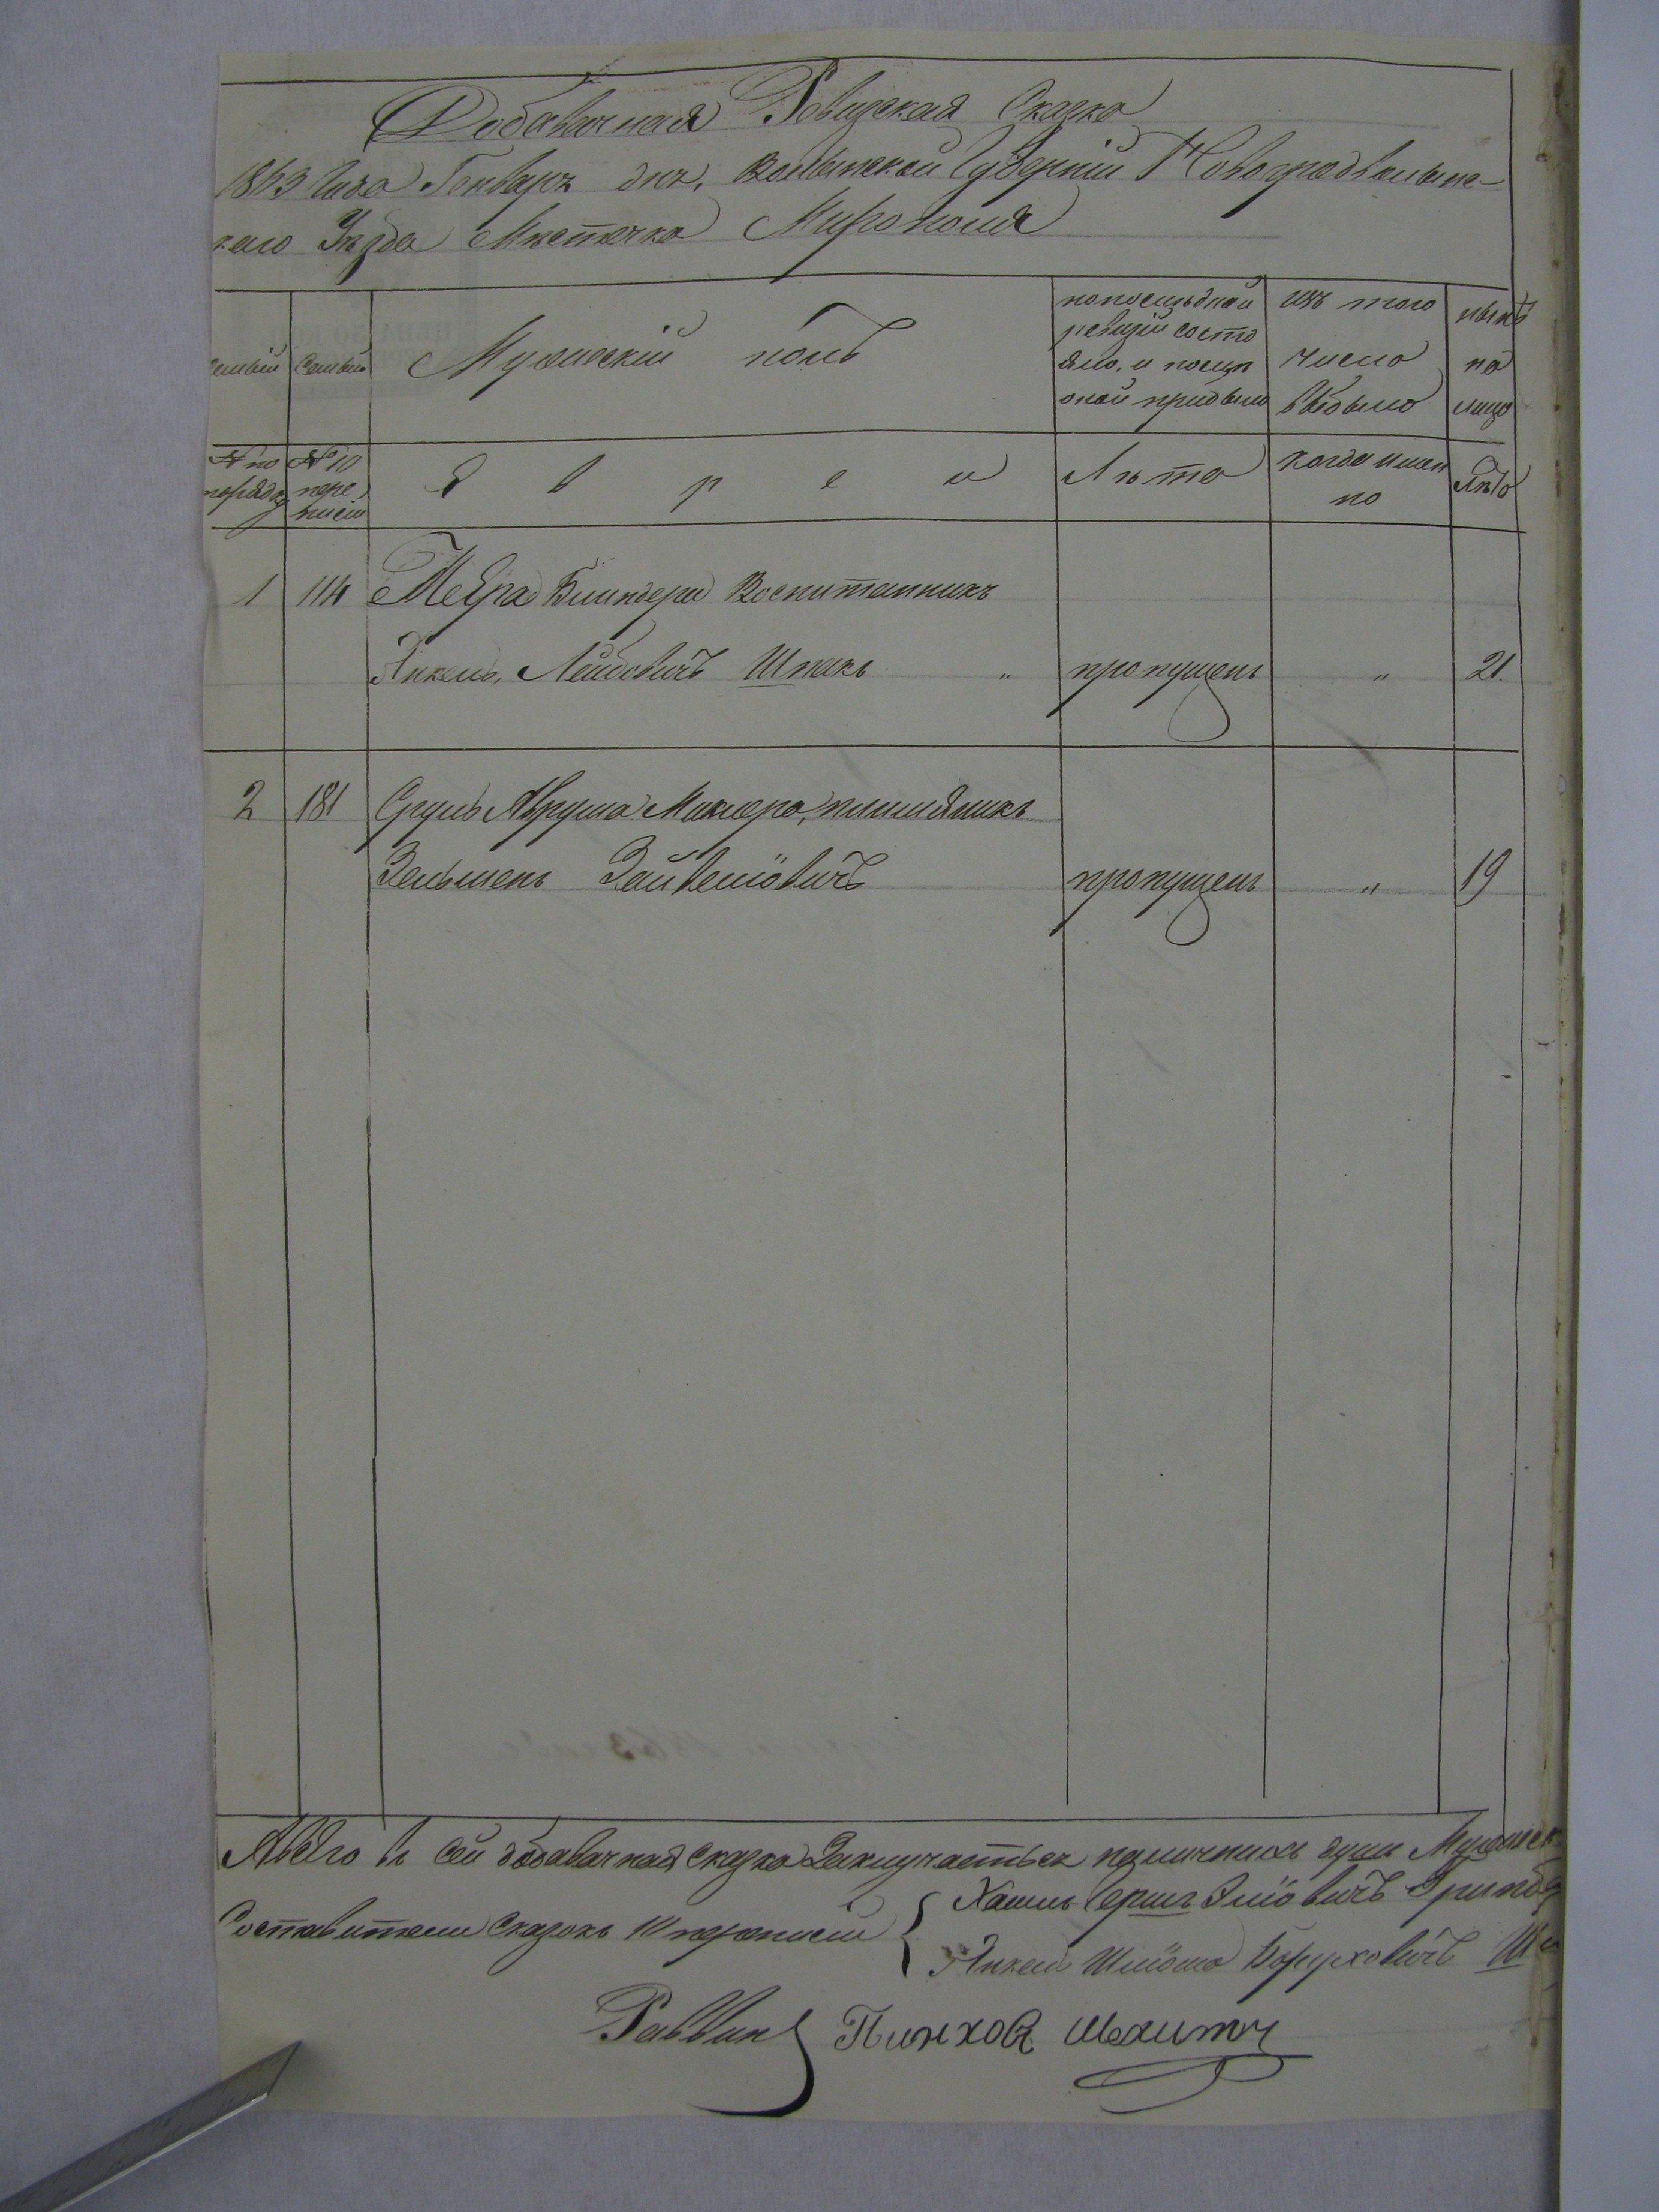 Добавачная Ревизская Сказка
1863 Года Генваря дня, Волынской Губерніи Новоградволынс-
каго Уѣзда Мѣстечка Мирополя
семьи семьи Мужескій полъ попослѣдней ревизіи состояло, и послѣ оной прибыло изъ того число выбыло нынѣ на лицо
№ по порядку №10 переписи Е в р е и Лѣта когда имен но Лѣта
1 114 Мейра Блиндера Воспитанникъ
Янкель Лейбовичъ Шпакъ „ пропущенъ „ 21.
2 181 Сруль Аврума племянникъ
Зельменъ Зейвелёвичъ пропущенъ „ 19
Авсего въ сей добавачной сказке заключается наличнихъ душъ Мужеск
Составители сказокъ 10 переписи { Хаимъ Гершъ Элёвичъ
Янкель Шлёма Боруховичъ
Раввин Пинхос